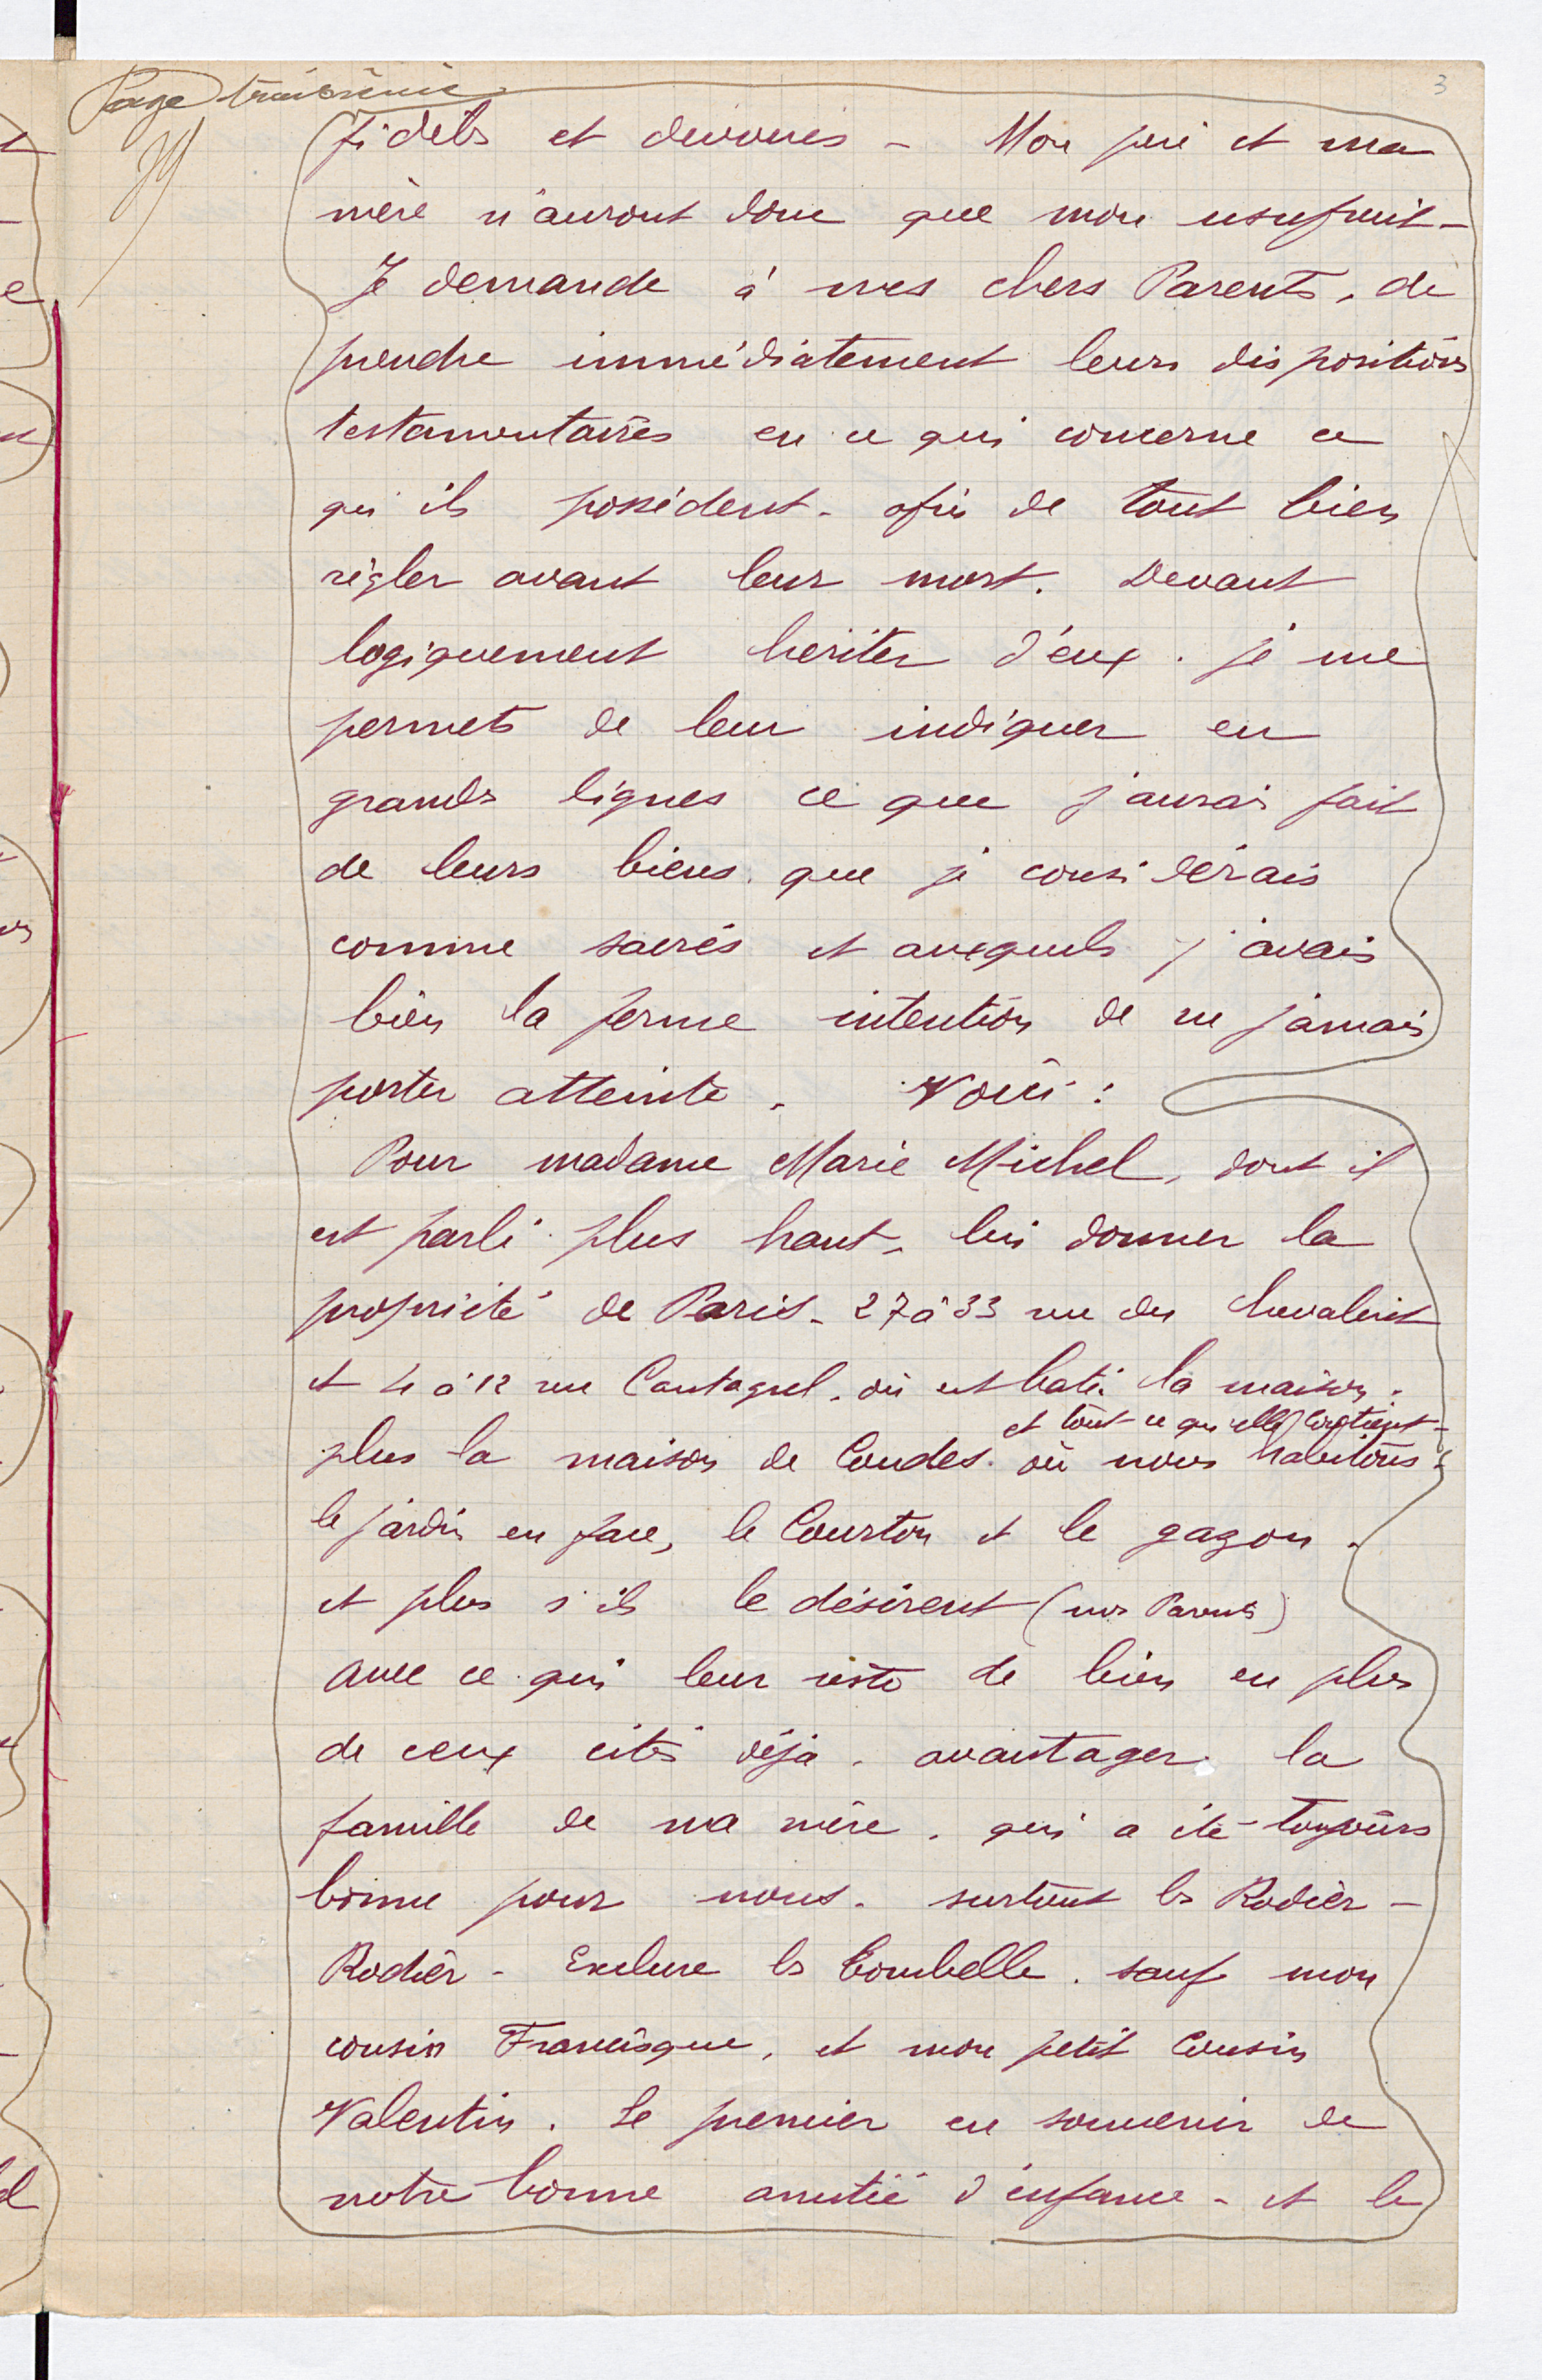 Page troisième
3
fidèles et dévoués - Mon père et ma
mère n'auront donc que mon usufruit -
Je demande à mes chers Parents, de
prendre immédiatement leurs dispositions
testamentaires en ce qui concerne ce
qu'ils possèdent - afin de tout bien
régler avant leur mort. Devant
logiquement heriter d'eux. je me
permets de leur indiquer en
grandes lignes ce que j'aurais fait
de leurs biens. que je considérais
comme sacrés et auxquels j'avais
bien la ferme intention de ne jamais
porter atteinte. Voici :
Pour madame Marie Michel, dont il
est parlé plus haut, lui donner la
propriété de Paris - 27 à 33 rue du Chevaleret
et 4 à 12 rue Cantagrel. où est bati la maison.
et tout ce qu'elle contient -
plus la maison de Coudes. où nous habitons -
le jardin en face, le Courton et le gazon.
et plus s'ils le désirent (mes Parents)
avec ce qui leur reste de bien en plus
de ceux cités déjà. avantager la
famille de ma mère. qui a été toujours
bonne pour nous. surtout les Rodier -
Rodier - Exclure les Combelle. sauf mon
cousin Francisque, et mon petit Cousin
Valentin. Le premier en souvenir de
notre bonne amitié d'enfance - et le